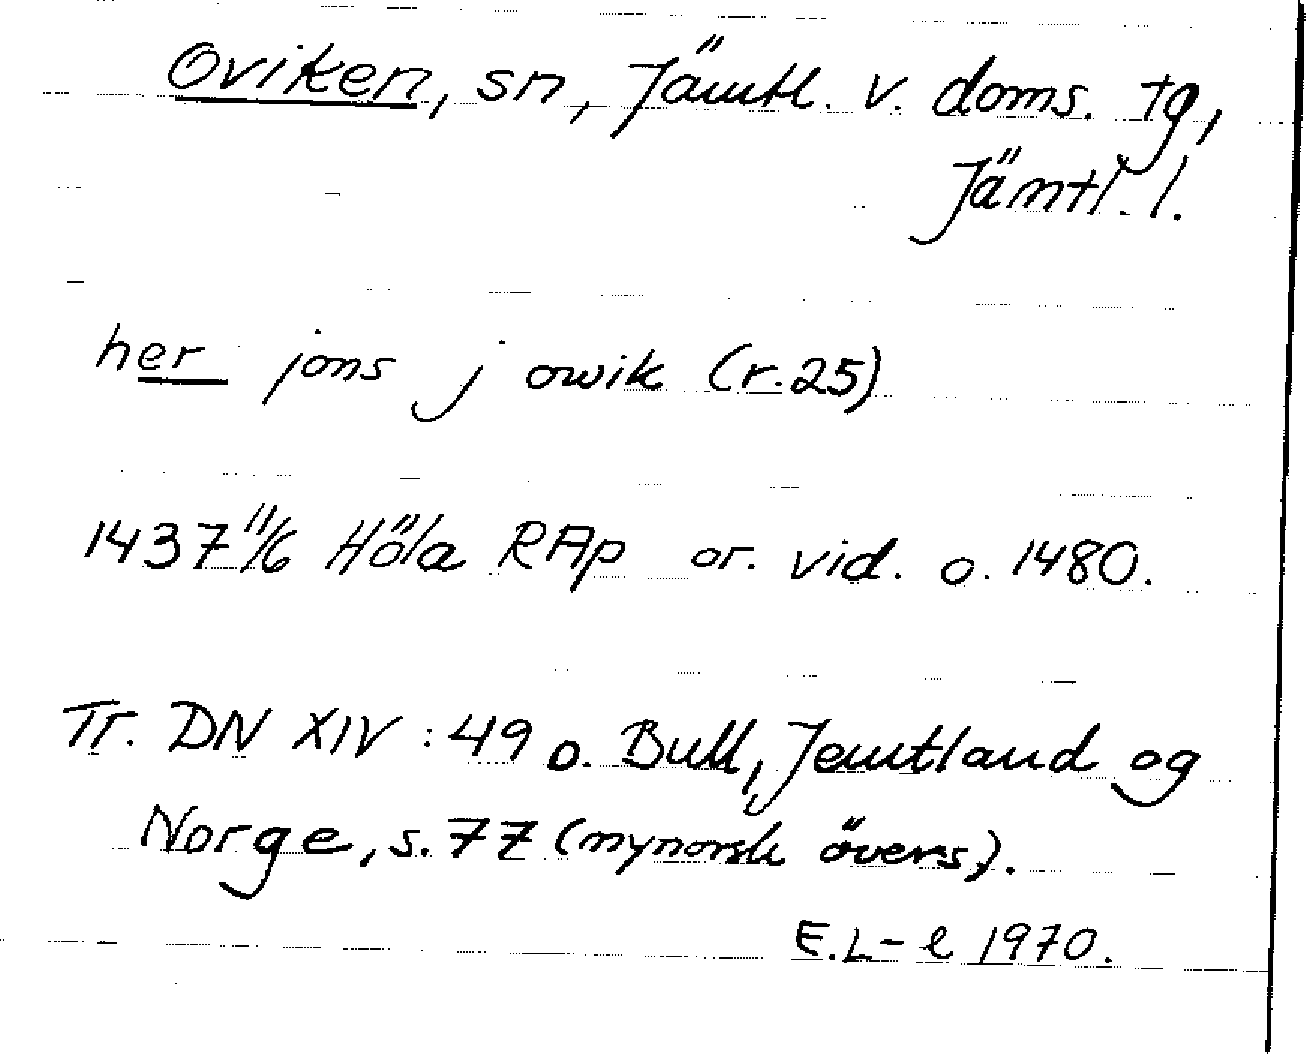 Oviken, sn, Jämtl. v. doms. tg,
Jämtl. l.
her jons j owik (r. 25)
1437 11/6 Höla RAp or. vid. o. 1480.
Tr. DN XIV : 49 o. Bull, Jemtland og
Norge, s. 77 (nynorsk övers).
E.L-l 1970.